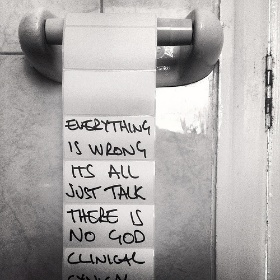 EVERYTHING
IS WRONG
ITS ALL
JUST TALK
THERE IS
NO GOD
CLINICAL
CYNICAL